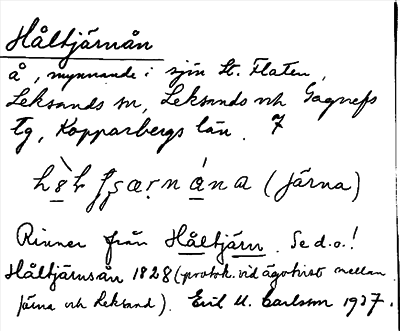 Håltjärnån
å, mynnande i sjön St. Flaten,
Leksands sn, Leksands och Gagnefs
tg, Kopparbergs län. 7
(Järna)
Rinner från Håltjärn. Se d.o.!
Håltjärnsån 1828 (protok. vid ägotvist mellan
Järna och Leksand). Eric U. Carlsson 1937.